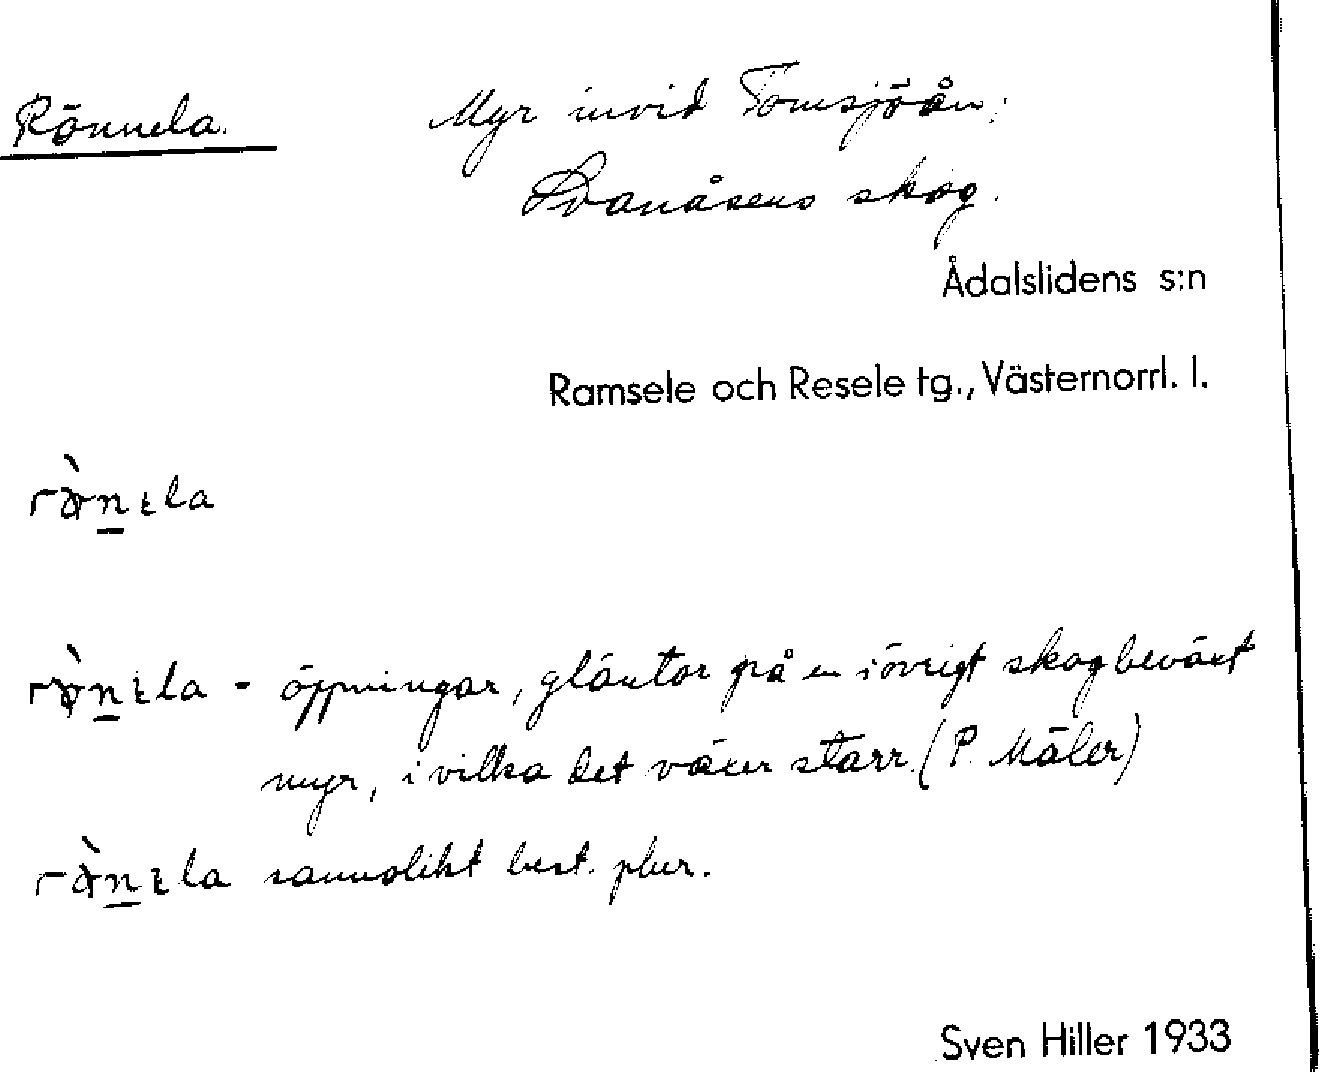 Rönnela. Myr invid Tomsjöån;
Svanåsens skog.
Ådalslidens s:n
Ramsele och Resele tg., Västernorrl. l.
öppningar, gläntor på en i övrigt skogbeväxt
myr, i vilka det växer starr. (P. Mäler)
sannolikt best. plur.
Sven Hiller 1933